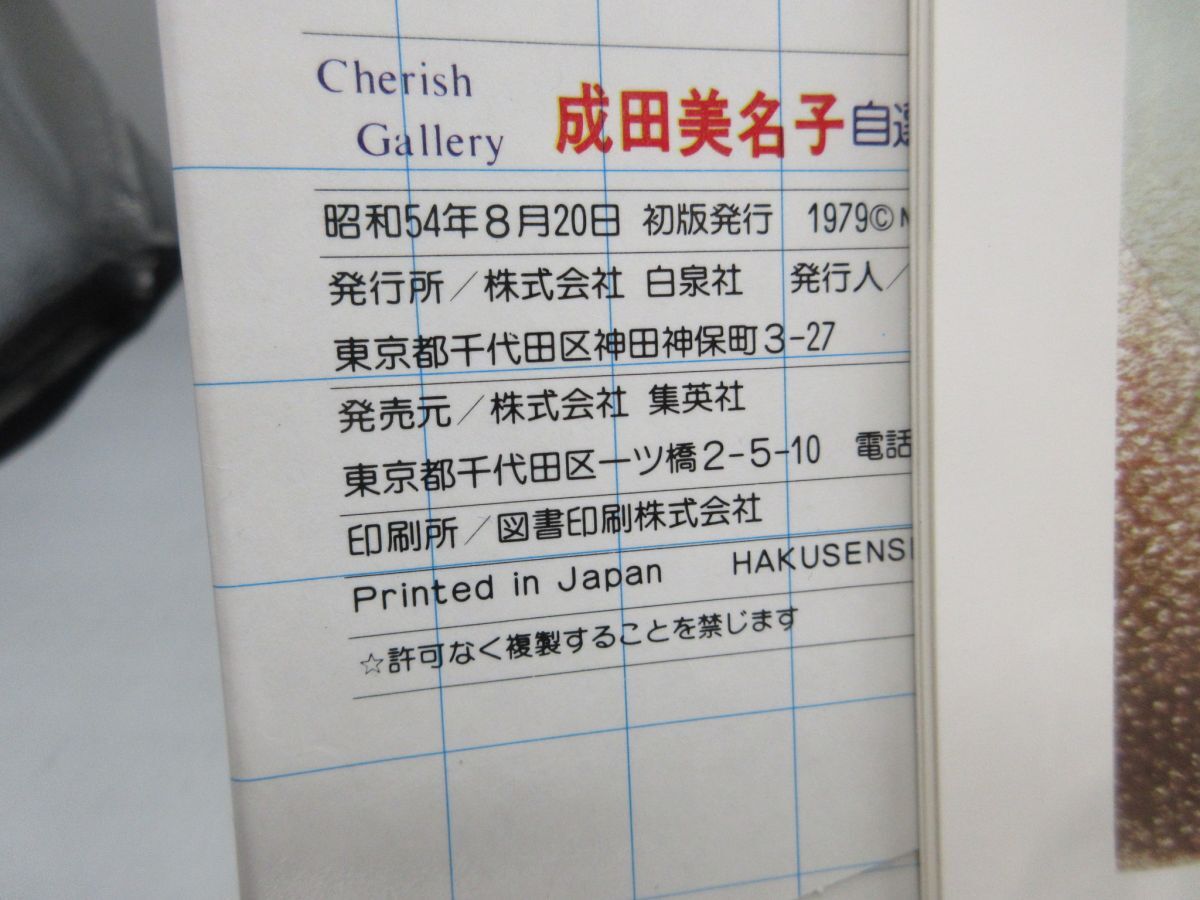 Cherish
Gallery
成田美名子自選
昭和54年8月20日 初版発行 1979© N
発行所／株式会社 白泉社 発行人／
東京都千代田区神田神保町3-27
発売元／株式会社 集英社
東京都千代田区一ツ橋2-5-10 電話
印刷所／図書印刷株式会社
Printed in Japan HAKUSENS
☆許可なく複製することを禁じます